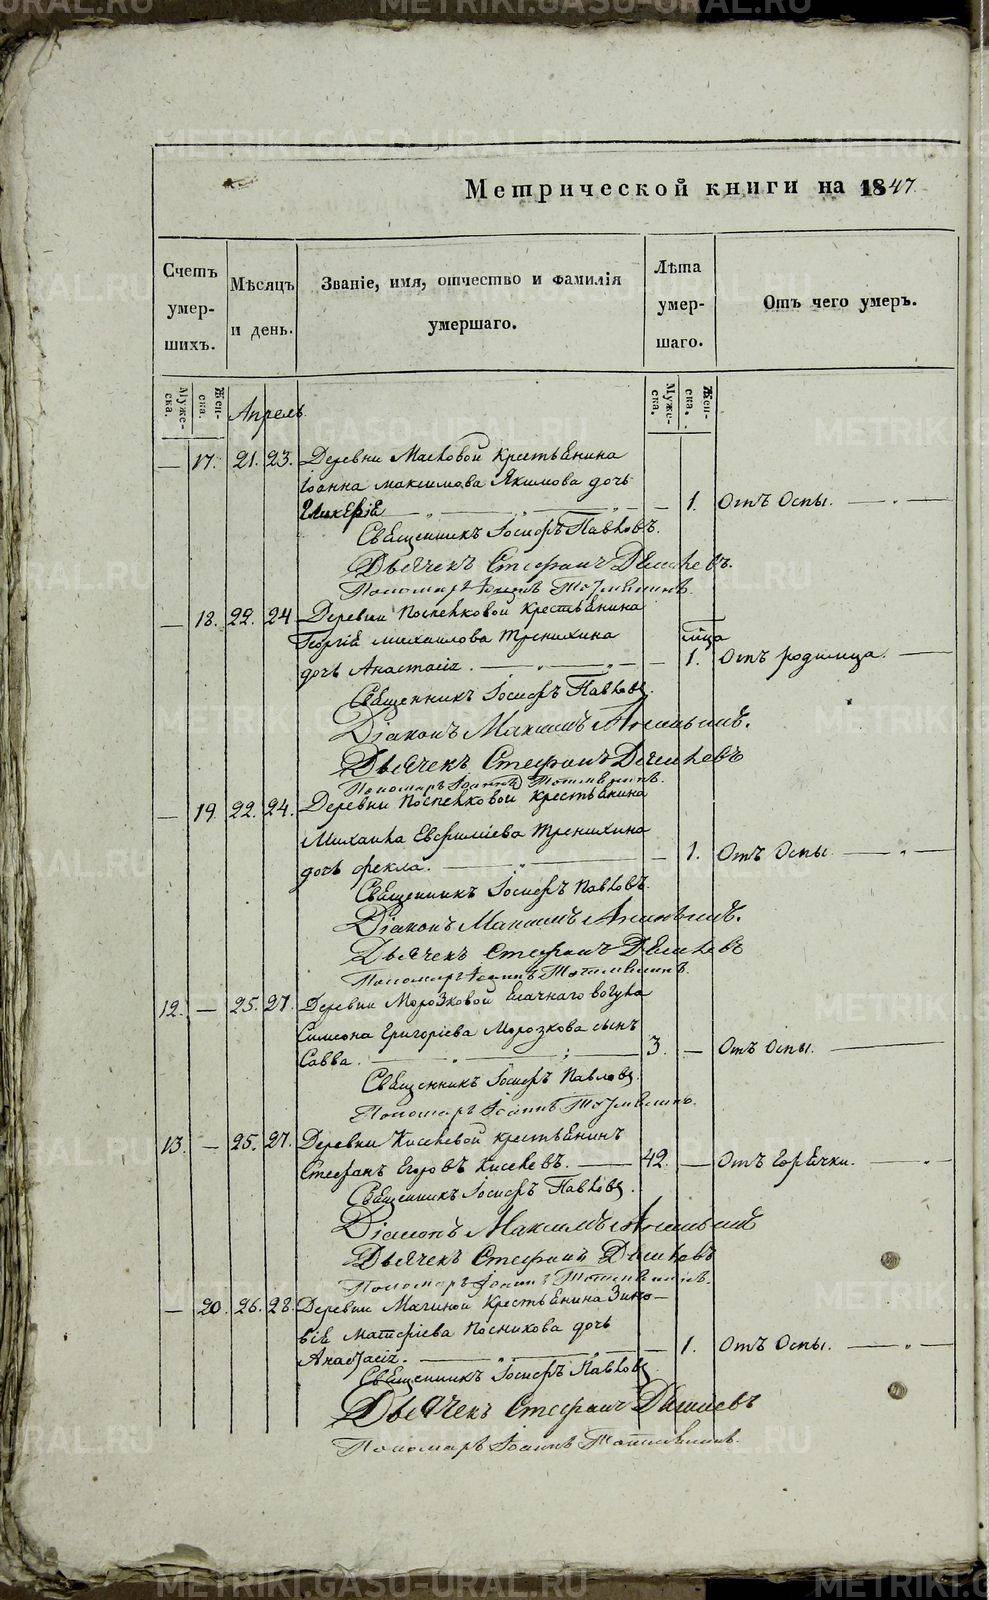 Метрической книги на 1847.
Счетъ умер-шихъ.
Мѣсяцъ и день.
Званіе, имя, отчество и фамилія умершаго.
Лѣта умер-шаго.
Отъ чего умеръ.
Муже-ска.
Жен-ска.
Муже-ска.
Жен-ска.
Апрель
— 17. 21. 23. Деревни Масловой крестьянина
Іоанна Максимова Якимова дочь
Гликерія — 1. Отъ Оспы.
Священникъ Іосифъ Павловъ.
Дьячекъ Стефанъ
Пономарь Іоаннъ
— 18. 22. 24 Деревни Поспелковой крестьянина
Георгія Михайлова Тренихина
дочь Анастасія. — 1. Отъ родимца.
Священникъ Іосифъ Павловъ.
Діаконъ Максимъ
Дьячекъ Стефанъ
Пономарь Іоаннъ
— 19. 22. 24. Деревни Поспелковой крестьянина
Михаила Евфиміева Тренихина
дочь Фекла. — 1. Отъ Оспы
Священникъ Іосифъ Павловъ.
Діаконъ Максимъ
Дьячекъ Стефанъ
Пономарь Іоаннъ
12. — 25. 27. Деревни Морозковой Ясачнаго вогула
Симеона Григоріева Морозкова сынъ
Савва. 3. — Отъ Оспы.
Священникъ Іосифъ Павловъ.
Пономарь Іоаннъ
13. — 25. 27. Деревни Киселевой крестьянинъ
Стефанъ Егоровъ Киселевъ. 42. — Отъ Горячки.
Священникъ Іосифъ Павловъ.
Діаконъ Максимъ
Дьячекъ Стефанъ
Пономарь Іоаннъ
— 20. 26. 28. Деревни Махиной Крестьянина Зино-
вія Матфіева Посникова дочь
Анастасія. — 1. Отъ Оспы.
Священникъ Іосифъ Павловъ
Дьячекъ Стефанъ
Пономарь Іоаннъ
METRIKI.GASO-URAL.RU